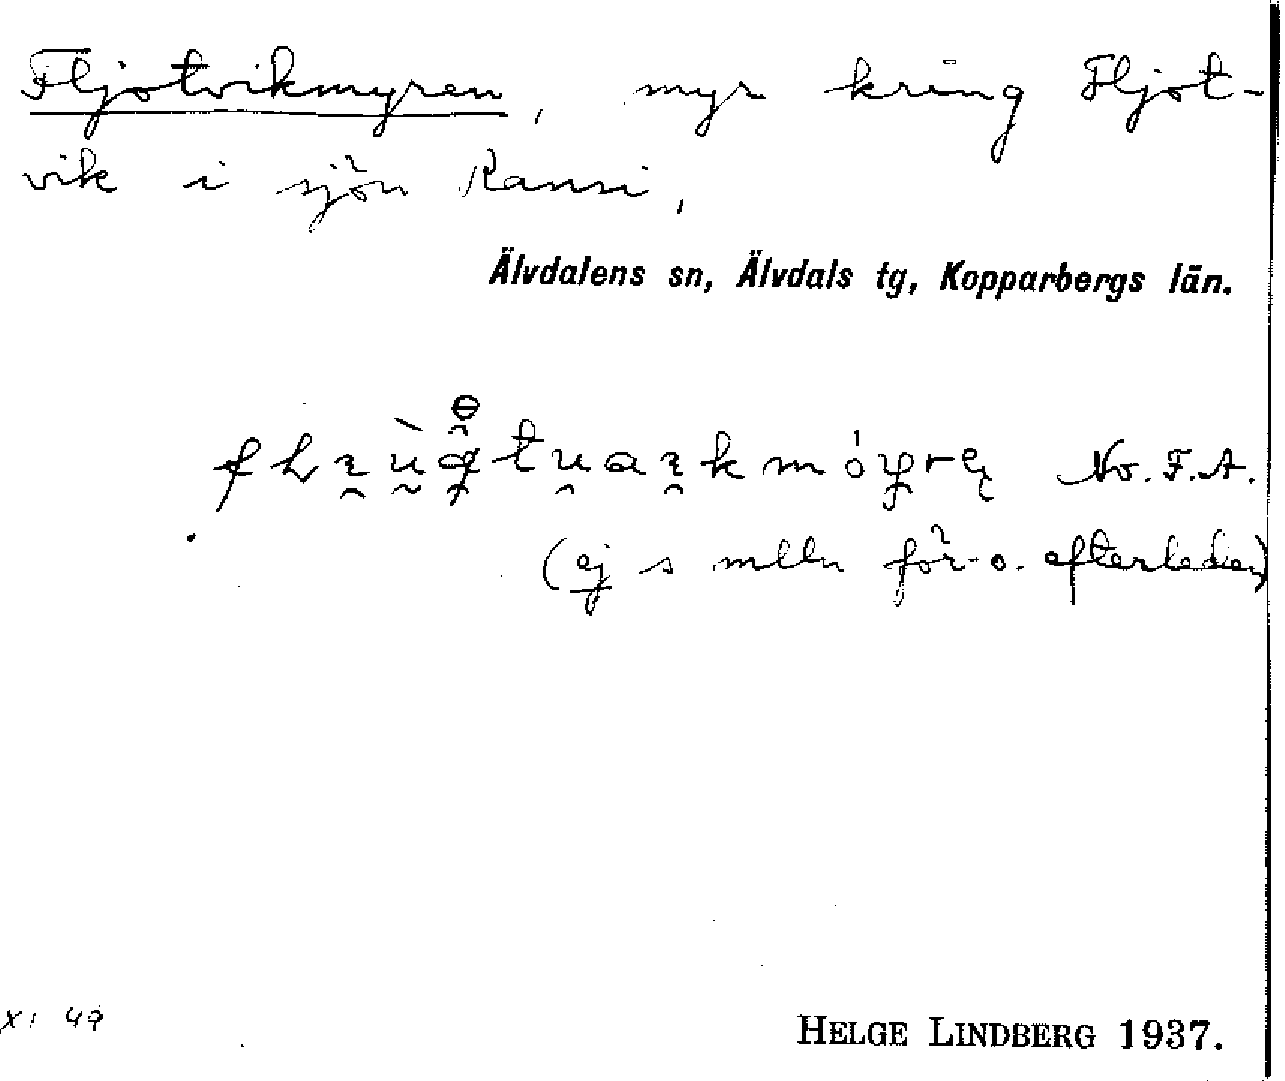 Fljotvikmyren, myr kring Fljot-
vik i sjön Ransi,
Älvdalens sn, Älvdals tg, Kopparbergs län.
No. F. A.
(ej s mlln för- o. efterleden)
X: 49
HELGE LINDBERG 1937.